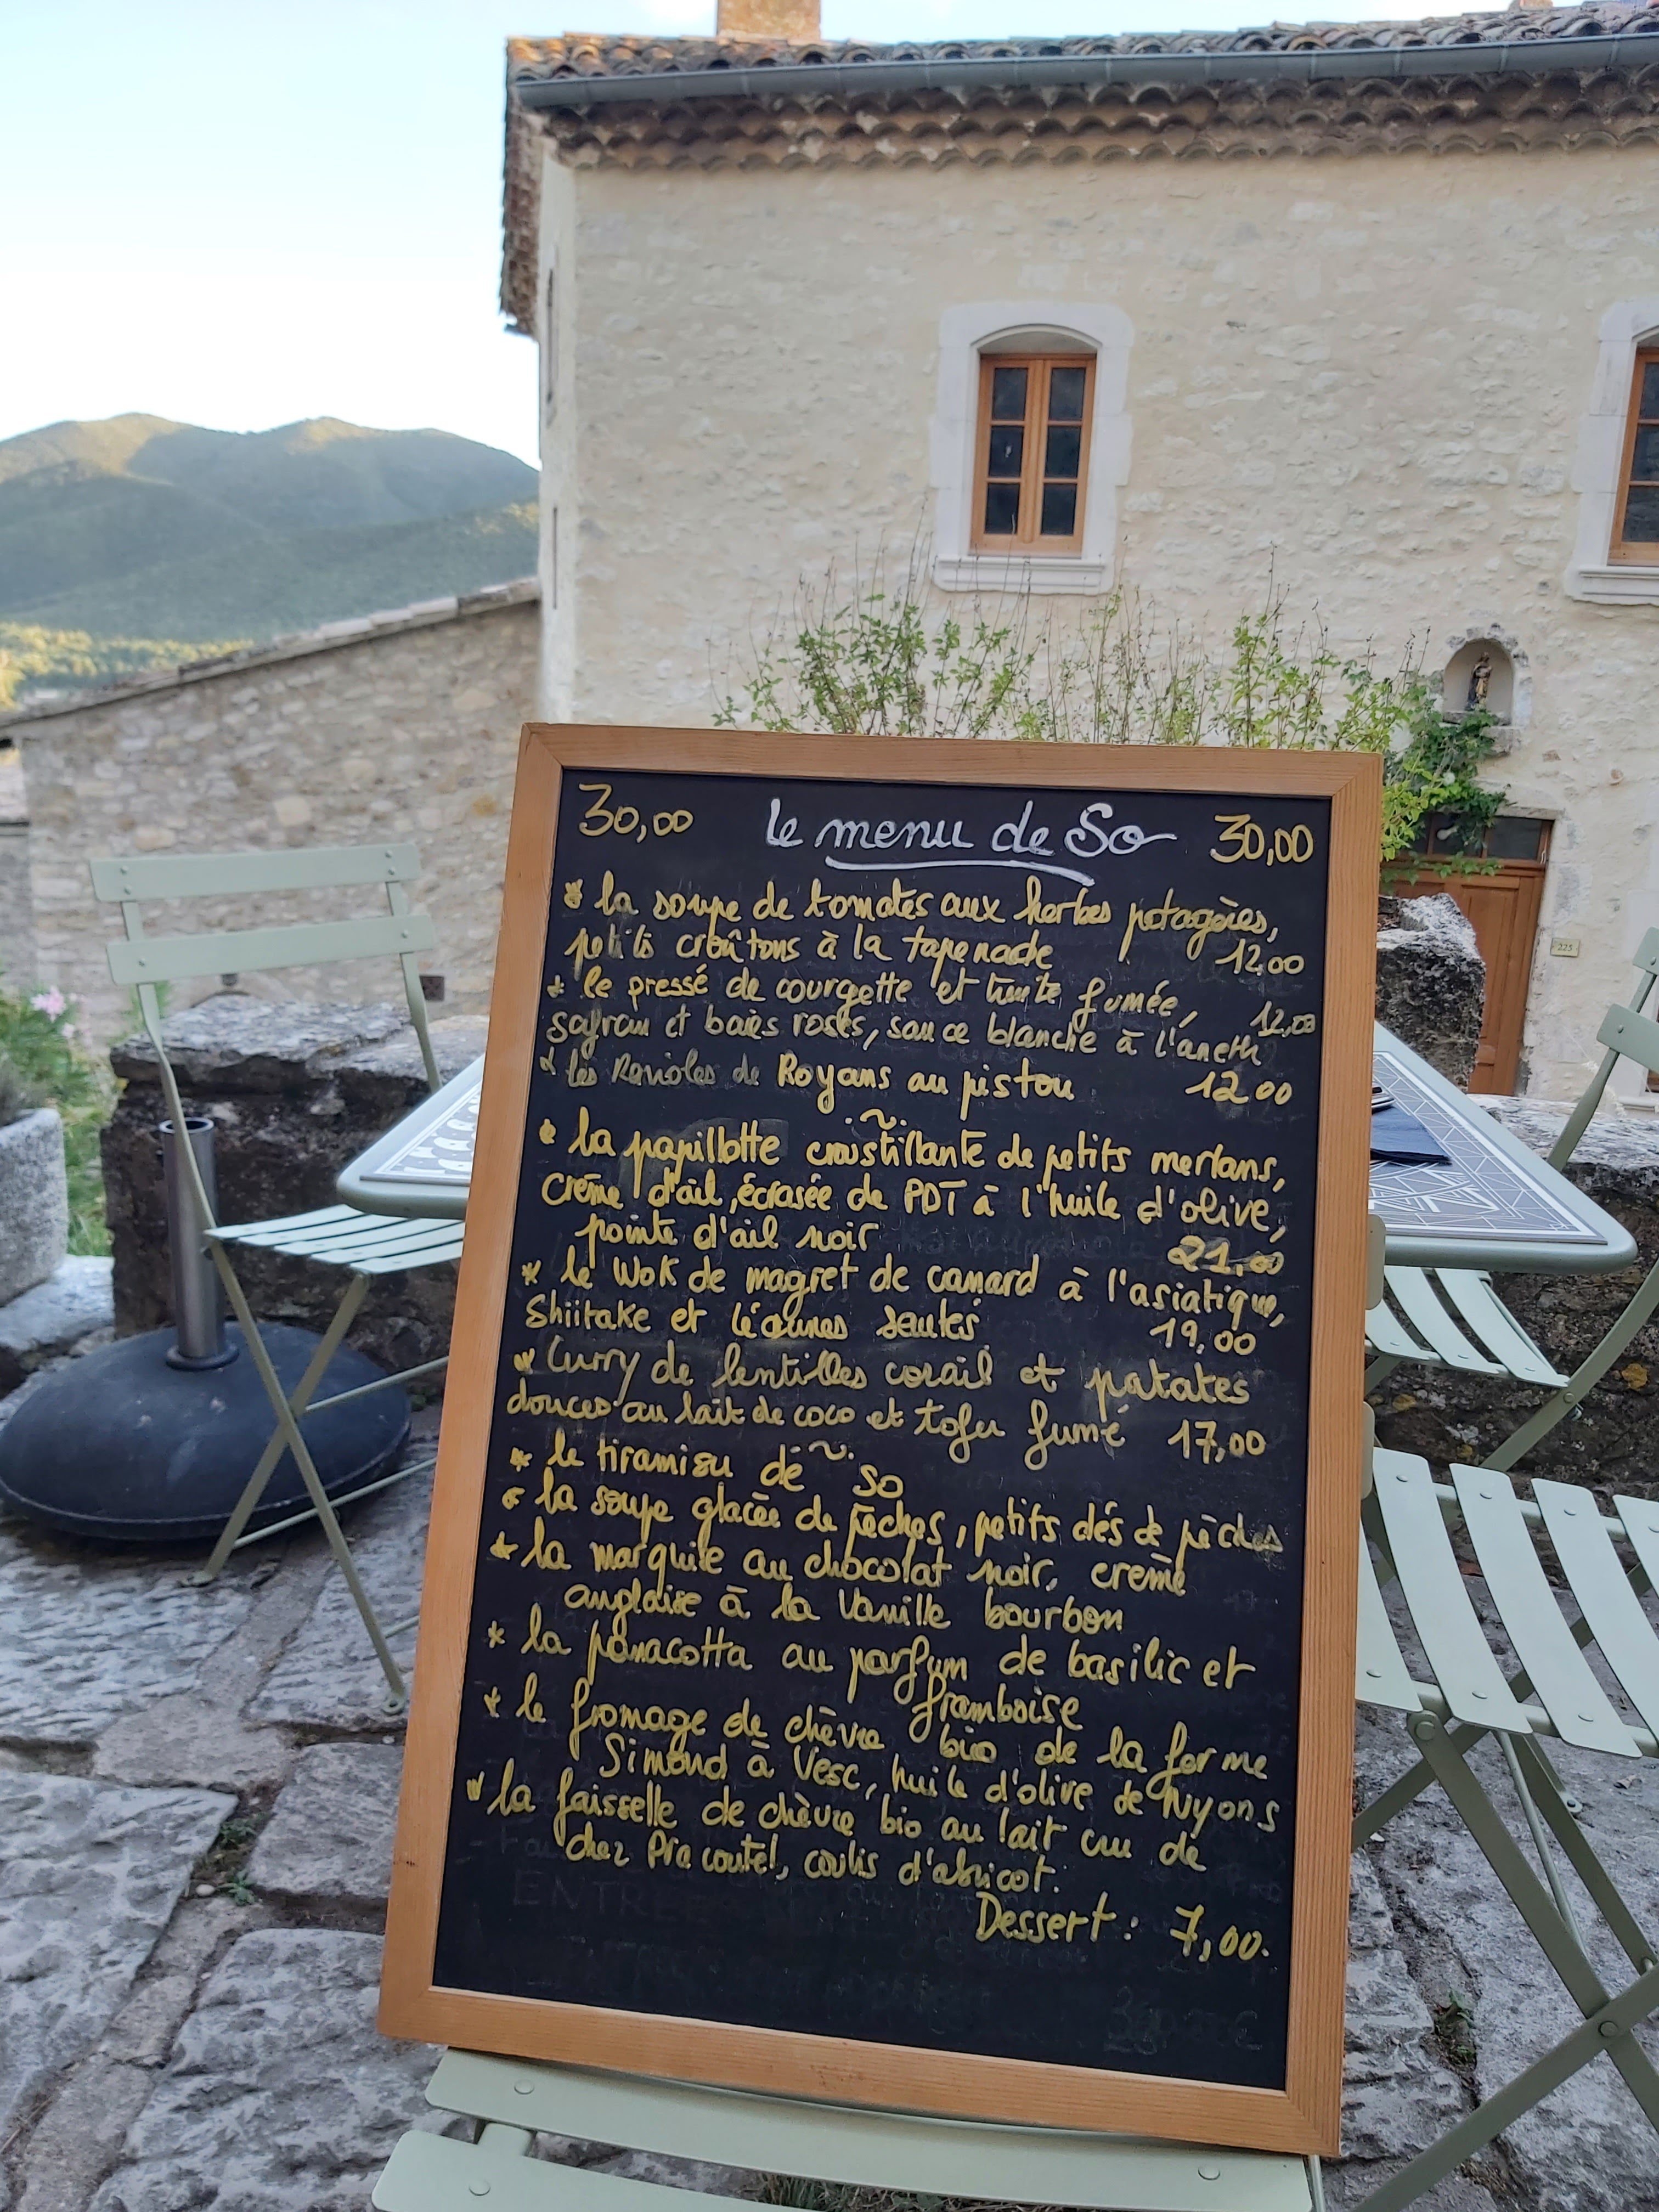 30,00 le menu de So 30,00
* la soupe de tomates aux herbes potagères,
petits croûtons à la tapenade 12.00
* le pressé de courgette et truite fumée, 12.00
safran et baies roses, sauce blanche à l'aneth
* les Ravioles de Royans au pistou 12.00
~
* la papillotte croustillante de petits merlans,
crème d'ail, écrasée de PDT à l'huile d'olive,
pointe d'ail noir 21.00
* le Wok de magret de canard à l'asiatique,
Shiitake et légumes sautés 19,00
* Curry de lentilles corail et patates
douces au lait de coco et tofu fumé 17,00
~
* le tiramisu de So
* la soupe glacée de pêches, petits dés de pêches
* la marquise au chocolat noir, crème
anglaise à la vanille bourbon
* la panacotta au parfum de basilic et
framboise
* le fromage de chèvre bio de la ferme
Simond à Vesc, huile d'olive de Nyons
* la faisselle de chèvre bio au lait cru de
chez Pracoutel, coulis d'abricot.
Dessert : 7,00.
ENTRE
225